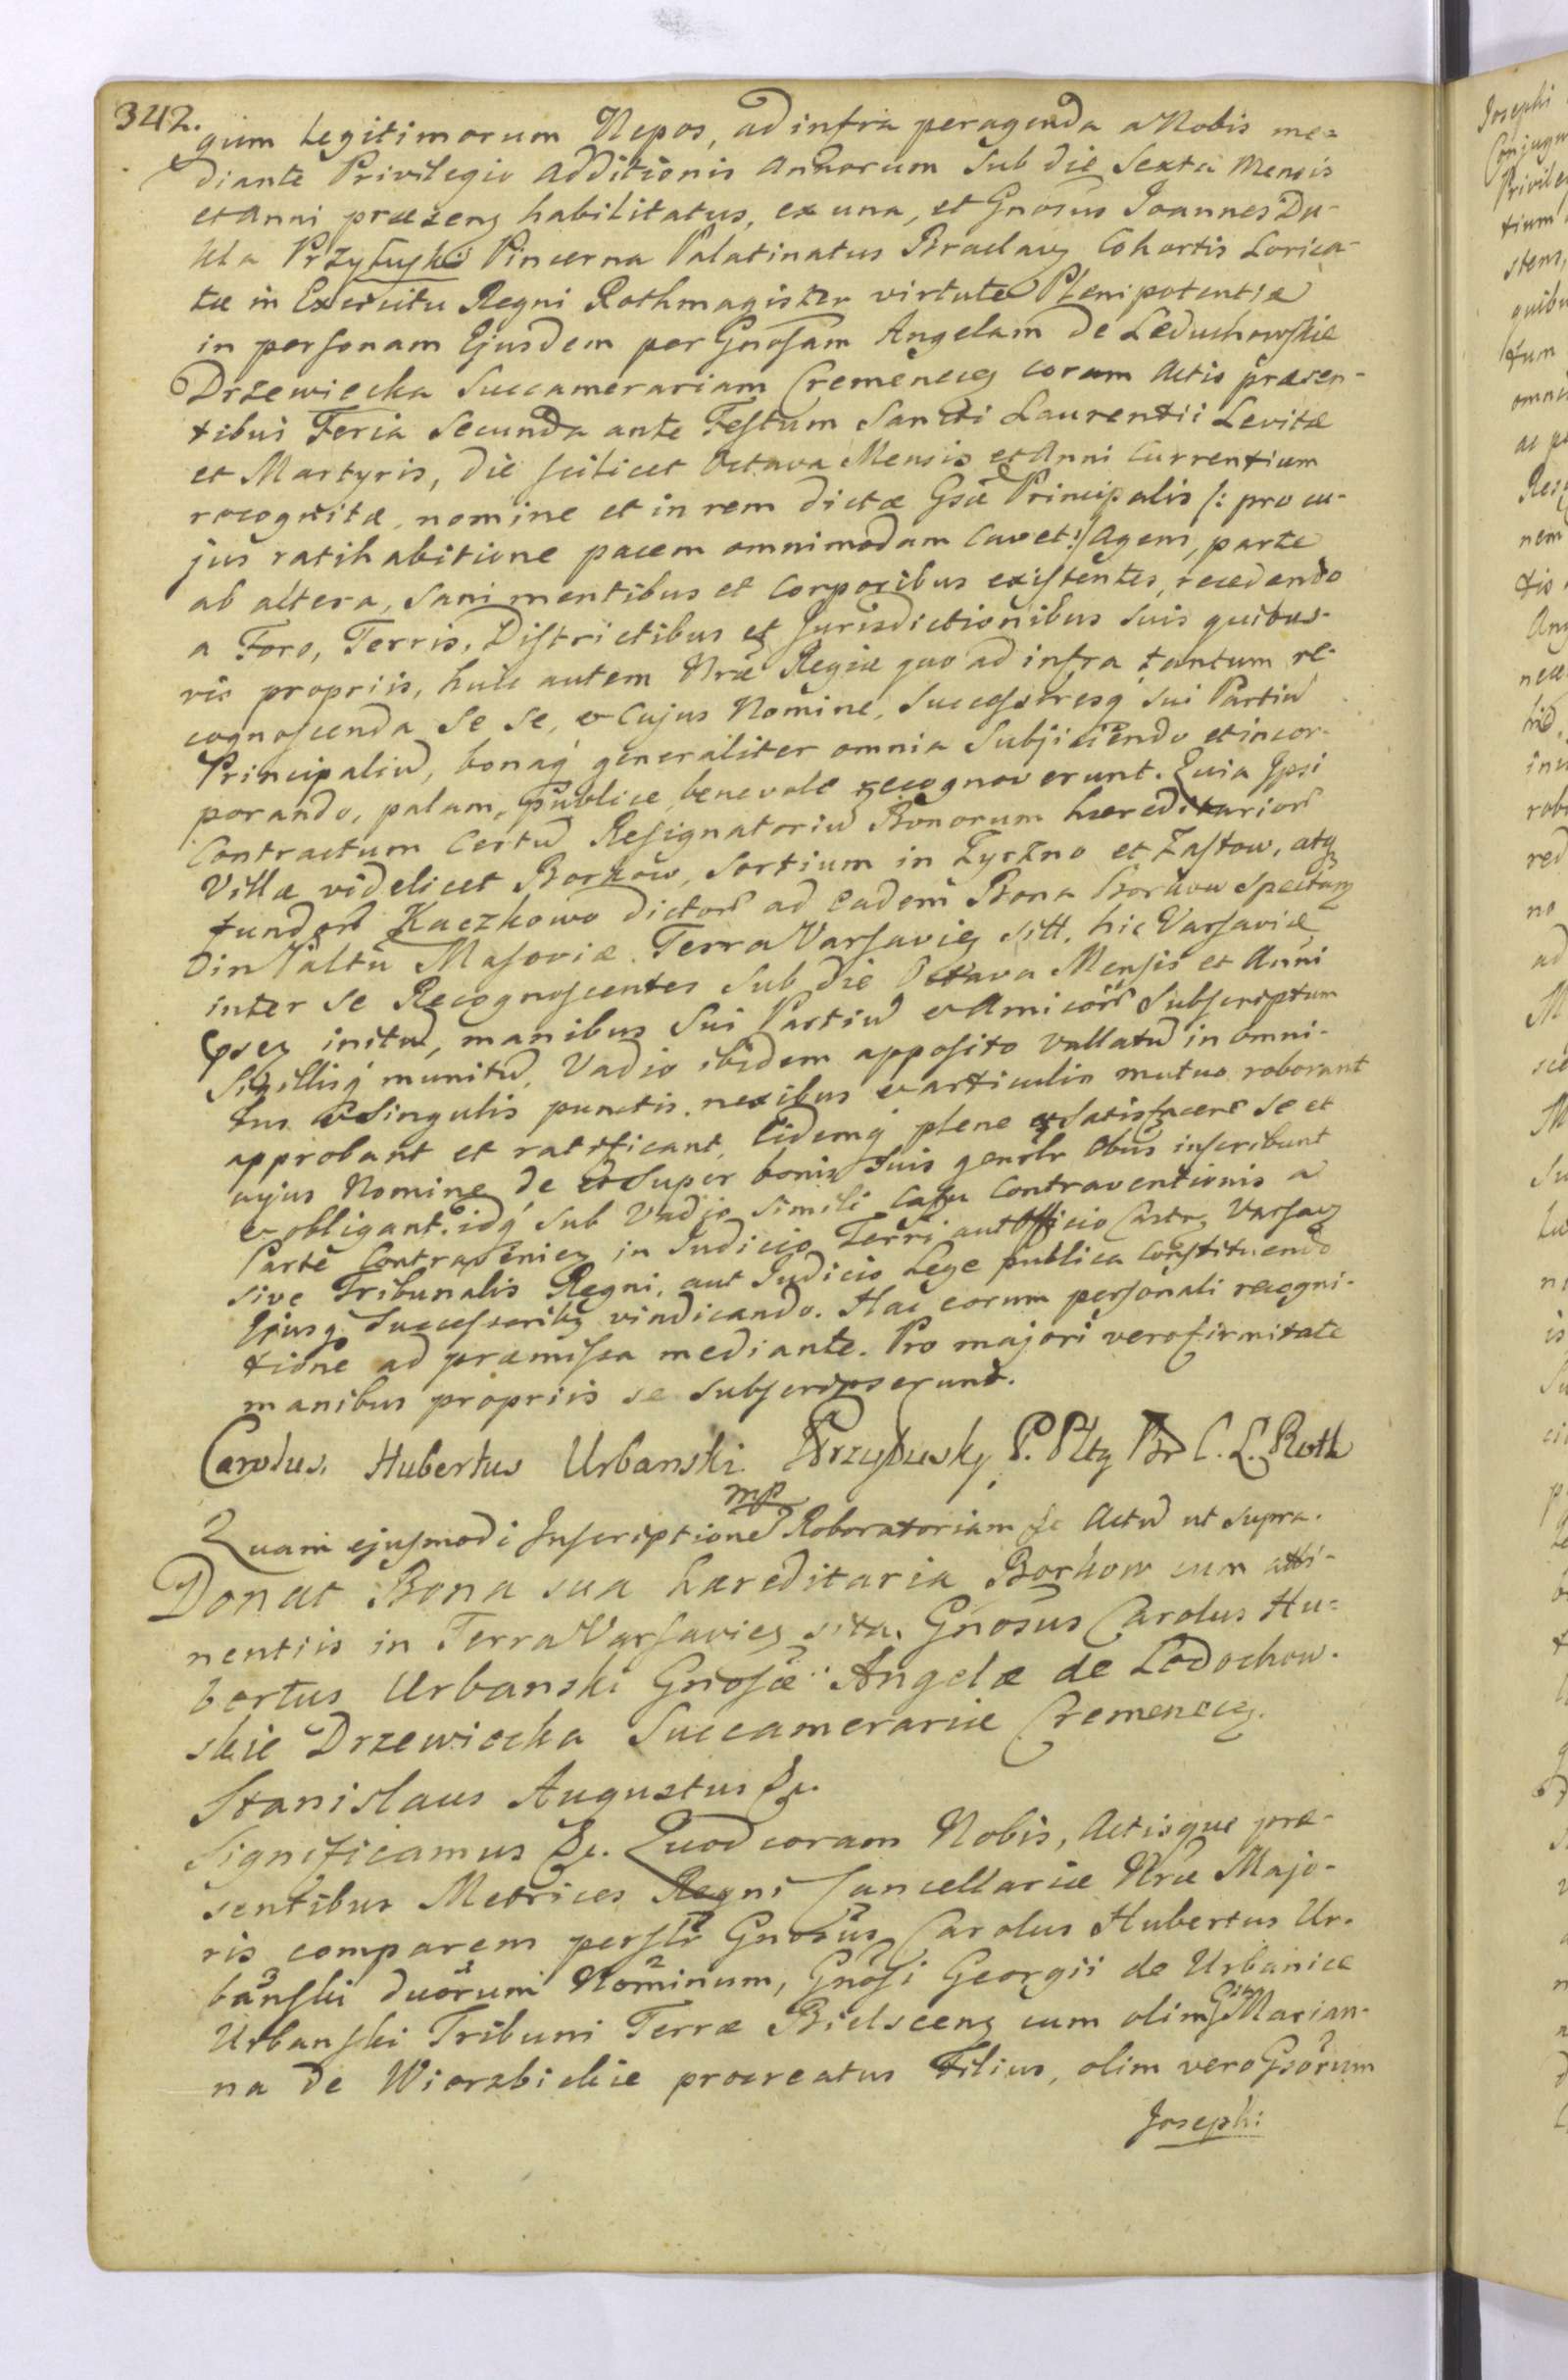 342.
gium Legitimorum Nepos, ad infra peragenda a Nobis me=
diante Privilegio Additionis Annorum sub die Sexta Mensis
et Anni præsenz habilitatus, ex una, et Gnosus Joannes Du-
kla Przyłuski Pincerna Palatinatus Braclavz Cohortis Lorica-
tæ in Exercitu Regni Rothmagister virtute Plenipotentiæ
in personam Ejusdem per Gnosam Angelam de Leduchowskie
Drzewiecka Succamerariam Cremenecz coram Actis præsen-
tibus Feria Secunda ante Festum Sancti Laurentii Levitæ
et Martyris, die scilicet Octava Mensis et Anni Currentium
recognitæ, nomine et in rem dictæ Gsæ Principalis /: pro cu-
jus ratihabitione pacem omnimodam Cavet :/ Agens, parte
ab altera, Sani mentibus et Corporibus existentes, recedendo
a Foro, Terris, Districtibus et Jurisdictionibus suis quibus-
vis propriis, huic autem Nræ Regiæ quo ad infra tantum re-
cognoscenda Se Se, & Cujus Nomine, Successoresq sui Partiu
Principaliu, bonaq generaliter omnia Subjiciendo et incor-
porando, palam, publice, benevole recognoverunt. Quia Ipsi
Contractum Certu Resignatoriu Bonorum hæreditarior
Villæ videlicet Borkow, Sortium in Zyrzno et Zastow, atq
fundor Kaczkowo dictor ad eadem Bona Borkow Spectanz
in Paltu Masoviæ Terra Varsaviez sitt. hic Varsaviæ
inter se Recognoscentes Sub die Octava Mensis et Anni
Præz initu, manibus Sui Partiu & Amicor Subscriptum
Sigillisq munitu, Vadio ibidem apposito Vallatu in omni-
bus & Singulis punctis, nexibus & articulis mutuo roborant
approbant et ratificant, Eidemq plene & Satisfacere Se et
cujus Nomine de et Super bonis Suis genlr obus inscribunt
& obligant. idq Sub Vadio simili Casu Contraventionis a
Parte Contraveniez in Judicio Terri aut Officio Castr, Varsavz
sive Tribunalis Regni, aut Judicio Lege publica Constituendo
Ejusq Successoribz vindicando. Hac eorum personali recogni-
tione ad præmissa mediante. Pro majori vero firmitate
manibus propriis se Subscripserunt.
Carolus Hubertus Urbanski Przyłusky P. Pltz Br C. L. Roth
mp
Quam ejusmodi Inscriptione Roboratoriam &c Actu ut supra.
Donat Bona sua hæreditaria Borkow cum atti-
nentiis in Terra Varsaviez sita. Gnosus Carolus Hu=
bertus Urbanski Gnosæ Angelæ de Ledochow-
skie Drzewiecka Succamerariæ Cremenecz.
Stanislaus Augustus &c.
Significamus &c. Quod coram Nobis, Actisque præ-
sentibus Metrices Regni Cancellariæ Nræ Majo-
ris comparens perslr Gnosus Carolus Hubertus Ur-
banski duorum Nominum, Gnosi Georgii de Urbanice
Urbanski Tribuni Terræ Bielscenz cum olim Marian-
na de Wierzbickie procreatus Filius, olim vero Gsorum
Josephi